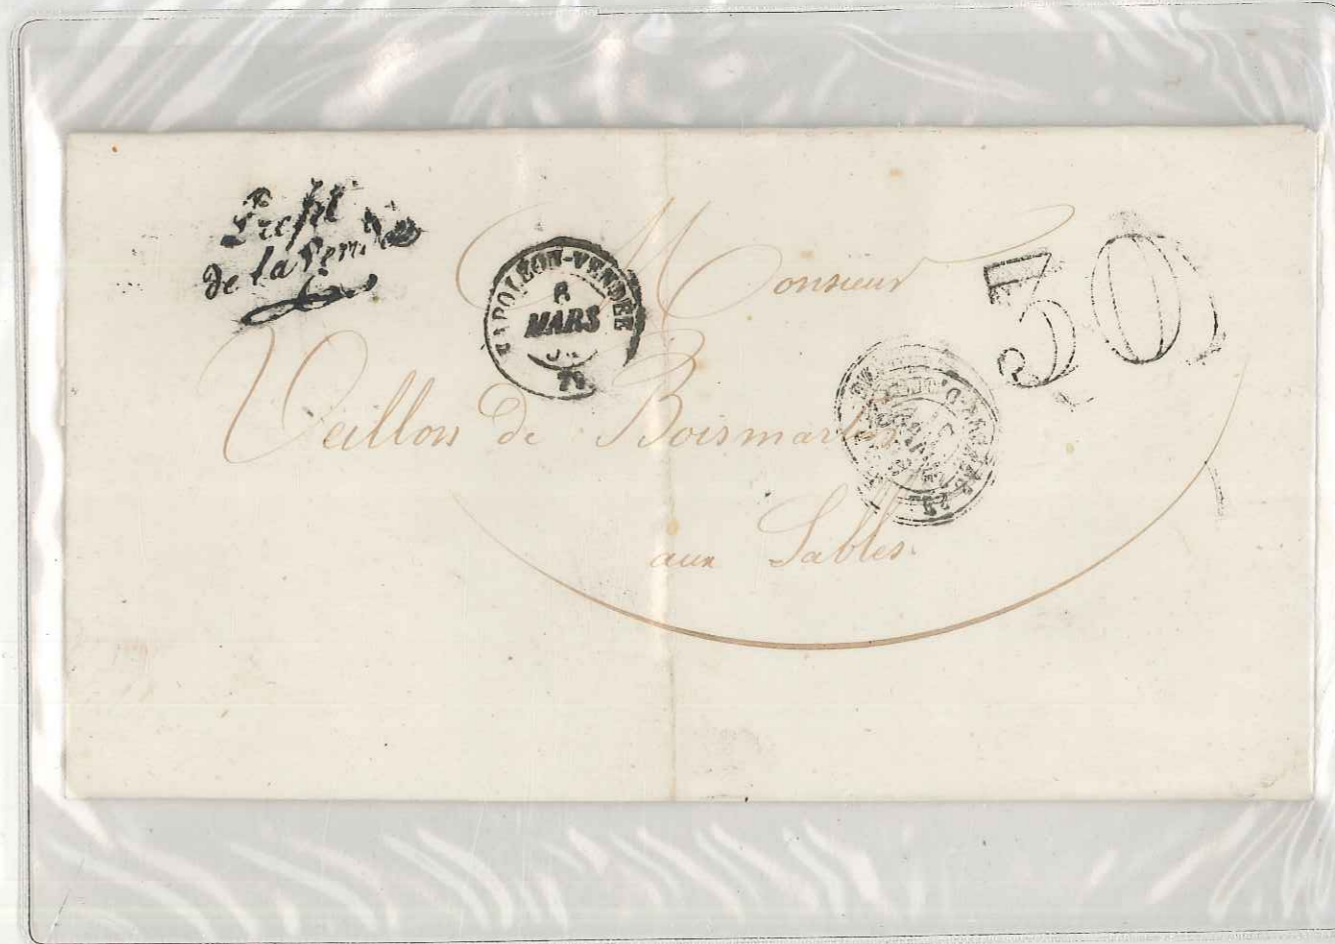 Préfet
de la Vendée
NAPOLÉON-VENDÉE
8
MARS
Monsieur
30
Veillon de Boismartin
aux Sables.